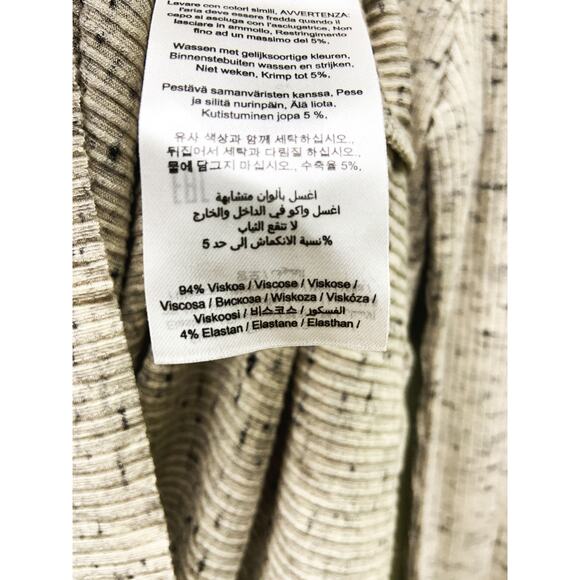 Lavare con colori simili, AVVERTENZA:
l'aria deve essere fredda quando il
capo si asciuga con l'asciugatrice, Non
lasciare in ammollo, Restringimento
fino ad un massimo del 5%.
Wassen met gelijksoortige kleuren,
Binnenstebuiten wassen en strijken,
Niet weken, Krimp tot 5%.
Pestävä samanväristen kanssa, Pese
ja silitä nurinpäin, Älä liota,
Kutistuminen jopa 5 %.
유사 색상과 함께 세탁하십시오.,
뒤집어서 세탁과 다림질 하십시오.,
물에 담그지 마십시오., 수축율 5%.
اغسل بألوان متشابهة
اغسل واكو في الداخل والخارج
لا تنقع الثياب
%نسبة الانكماش إلى حد 5
94% Viskos / Viscose / Viskose /
Viscosa / Вискоза / Wiskoza / Viskóza /
Viskoosi / 비스코스 / الفسكور /
4% Elastan / Elastane / Elasthan /